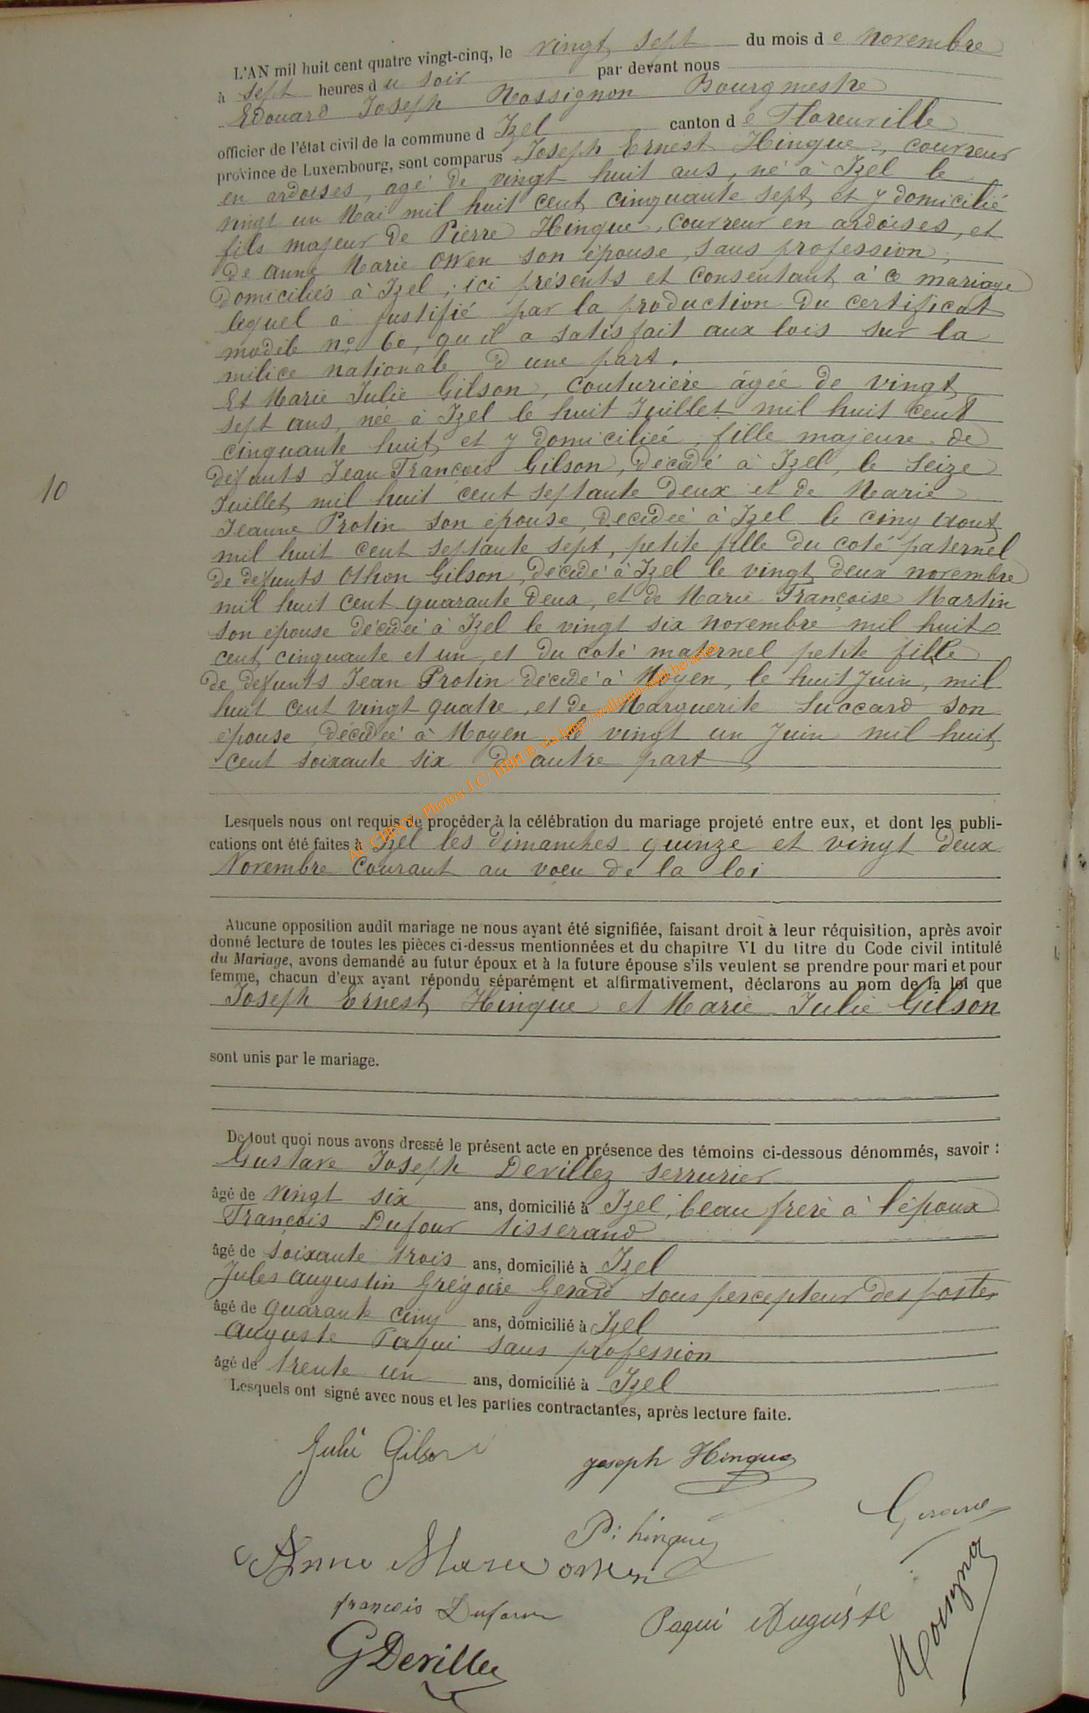 L'AN mil huit cent quatre vingt-cinq, le vingt sept du mois de novembre
à sept heures du soir par devant nous
Edouard Joseph Rossignon Bourgmestre
officier de l'état civil de la commune d Izel canton de Florenville
province de Luxembourg, sont comparus Joseph Ernest Hinque, couvreur
en ardoises, agé de vingt huit ans, né à Izel le
vingt un Mai mil huit cent cinquante sept et y domicilié
fils majeur de Pierre Hinque, couvreur en ardoises, et
de anne Marie Owen son épouse, sans profession,
domiciliés à Izel, ici présents et consentant à ce mariage
lequel a justifié par la production du certificat
modèle n° 60, qu'il a satisfait aux lois sur la
milice nationale d'une part.
Et Marie Julie Gilson, couturière âgée de vingt
sept ans, née à Izel le huit Juillet mil huit cent
cinquante huit et y domiciliée, fille majeure de
10
défunts Jean François Gilson, décédé à Izel, le seize
Juillet mil huit cent septante deux et de Marie
Jeanne Protin son épouse, décédée à Izel le cinq Aout
mil huit cent septante sept, petite fille du coté paternel
de défunts Othon Gilson, décédé à Izel le vingt deux novembre
mil huit cent quarante deux, et de Marie Françoise Martin
son épouse décédée à Izel le vingt six novembre mil huit
cent cinquante et un, et du coté maternel petite fille
de défunts Jean Protin décédé à Moyen, le huit Juin, mil
huit cent vingt quatre, et de Marguerite Succard son
épouse, décédée à Moyen le vingt un Juin mil huit
cent soixante six d'autre part
Lesquels nous ont requis de procéder à la célébration du mariage projeté entre eux, et dont les publi-
cations ont été faites à Izel les dimanches quinze et vingt deux
Novembre courant au voeu de la loi
Aucune opposition audit mariage ne nous ayant été signifiée, faisant droit à leur réquisition, après avoir
donné lecture de toutes les pièces ci-dessus mentionnées et du chapitre VI du titre du Code civil intitulé
du Mariage, avons demandé au futur époux et à la future épouse s'ils veulent se prendre pour mari et pour
femme, chacun d'eux ayant répondu séparément et affirmativement, déclarons au nom de la loi que
Joseph Ernest Hinque et Marie Julie Gilson
sont unis par le mariage.
De tout quoi nous avons dressé le présent acte en présence des témoins ci-dessous dénommés, savoir :
Gustave Joseph Devillez serrurier
âgé de vingt six ans, domicilié à Izel, beau frère à l'époux
François Dufour tisserand
âgé de soixante trois ans, domicilié à Izel
Jules augustin Grégoire Gerard sous percepteur des postes
âgé de quarante cinq ans, domicilié à Izel
auguste Paqui sans profession
âgé de trente un ans, domicilié à Izel
Lesquels ont signé avec nous et les parties contractantes, après lecture faite.
Julie Gilson joseph Hinque
P: hinque
Anne Marie owen
françois Dufour Paqui Auguste
GDevillez